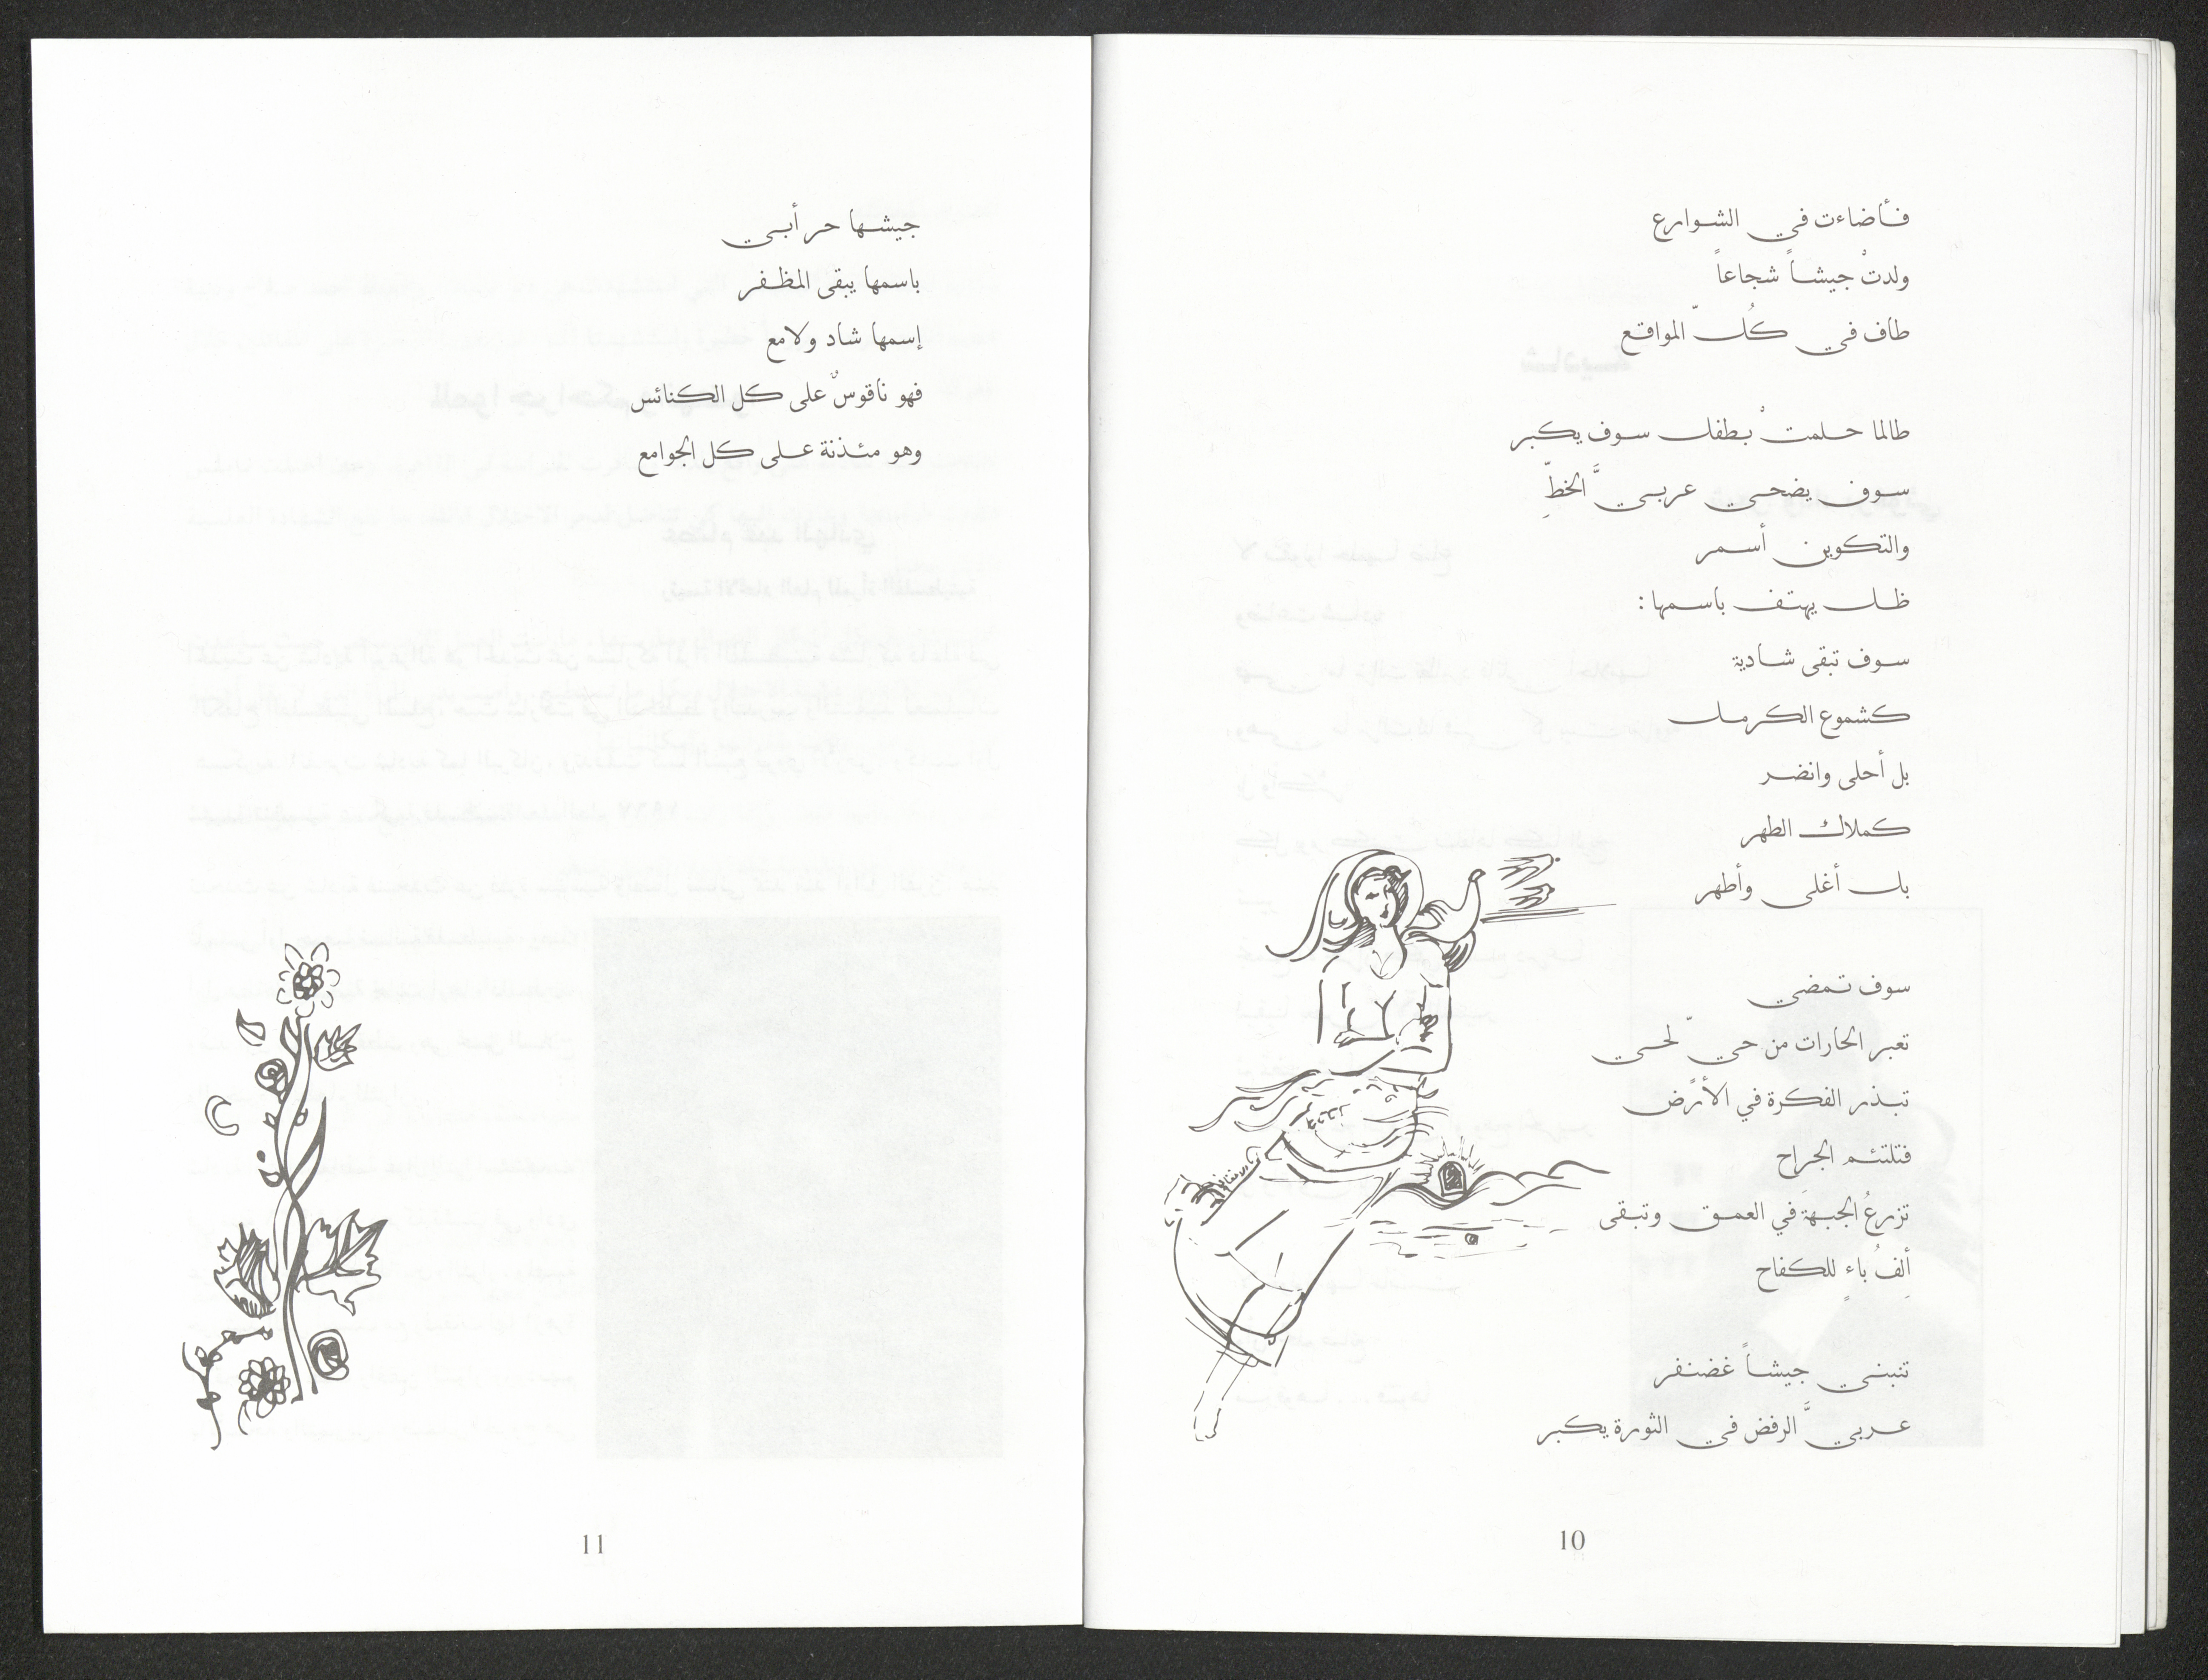 فأضاءت في الشوارع
ولدتْ جيشاً شجاعاً
طاف في كُلّ المواقع
طالما حلمتْ بطفل سوف يكبر
سوف يضحي عربيَّ الخطِّ
والتكوين أسمر
ظل يهتف باسمها :
سوف تبقى شادية
كشموع الكرمل
بل أحلى وانضر
كملاك الطهر
بل أغلى وأطهر
سوف تمضي
تعبر الحارات من حيّ لحي
تبذر الفكرة في الأرض
فتلتئم الجراح
تزرعُ الجبهةَ في العموق وتبقى
ألِفُ باءٍ للكفاح
تنبني جيشاً غضنفر
عربيَّ الرفض في الثورة يكبر
10
جيشها حر أبي
باسمها يبقى المظفر
إسمها شاد ولامع
فهو ناقوسٌ على كل الكنائس
وهو مئذنة على كل الجوامع
11